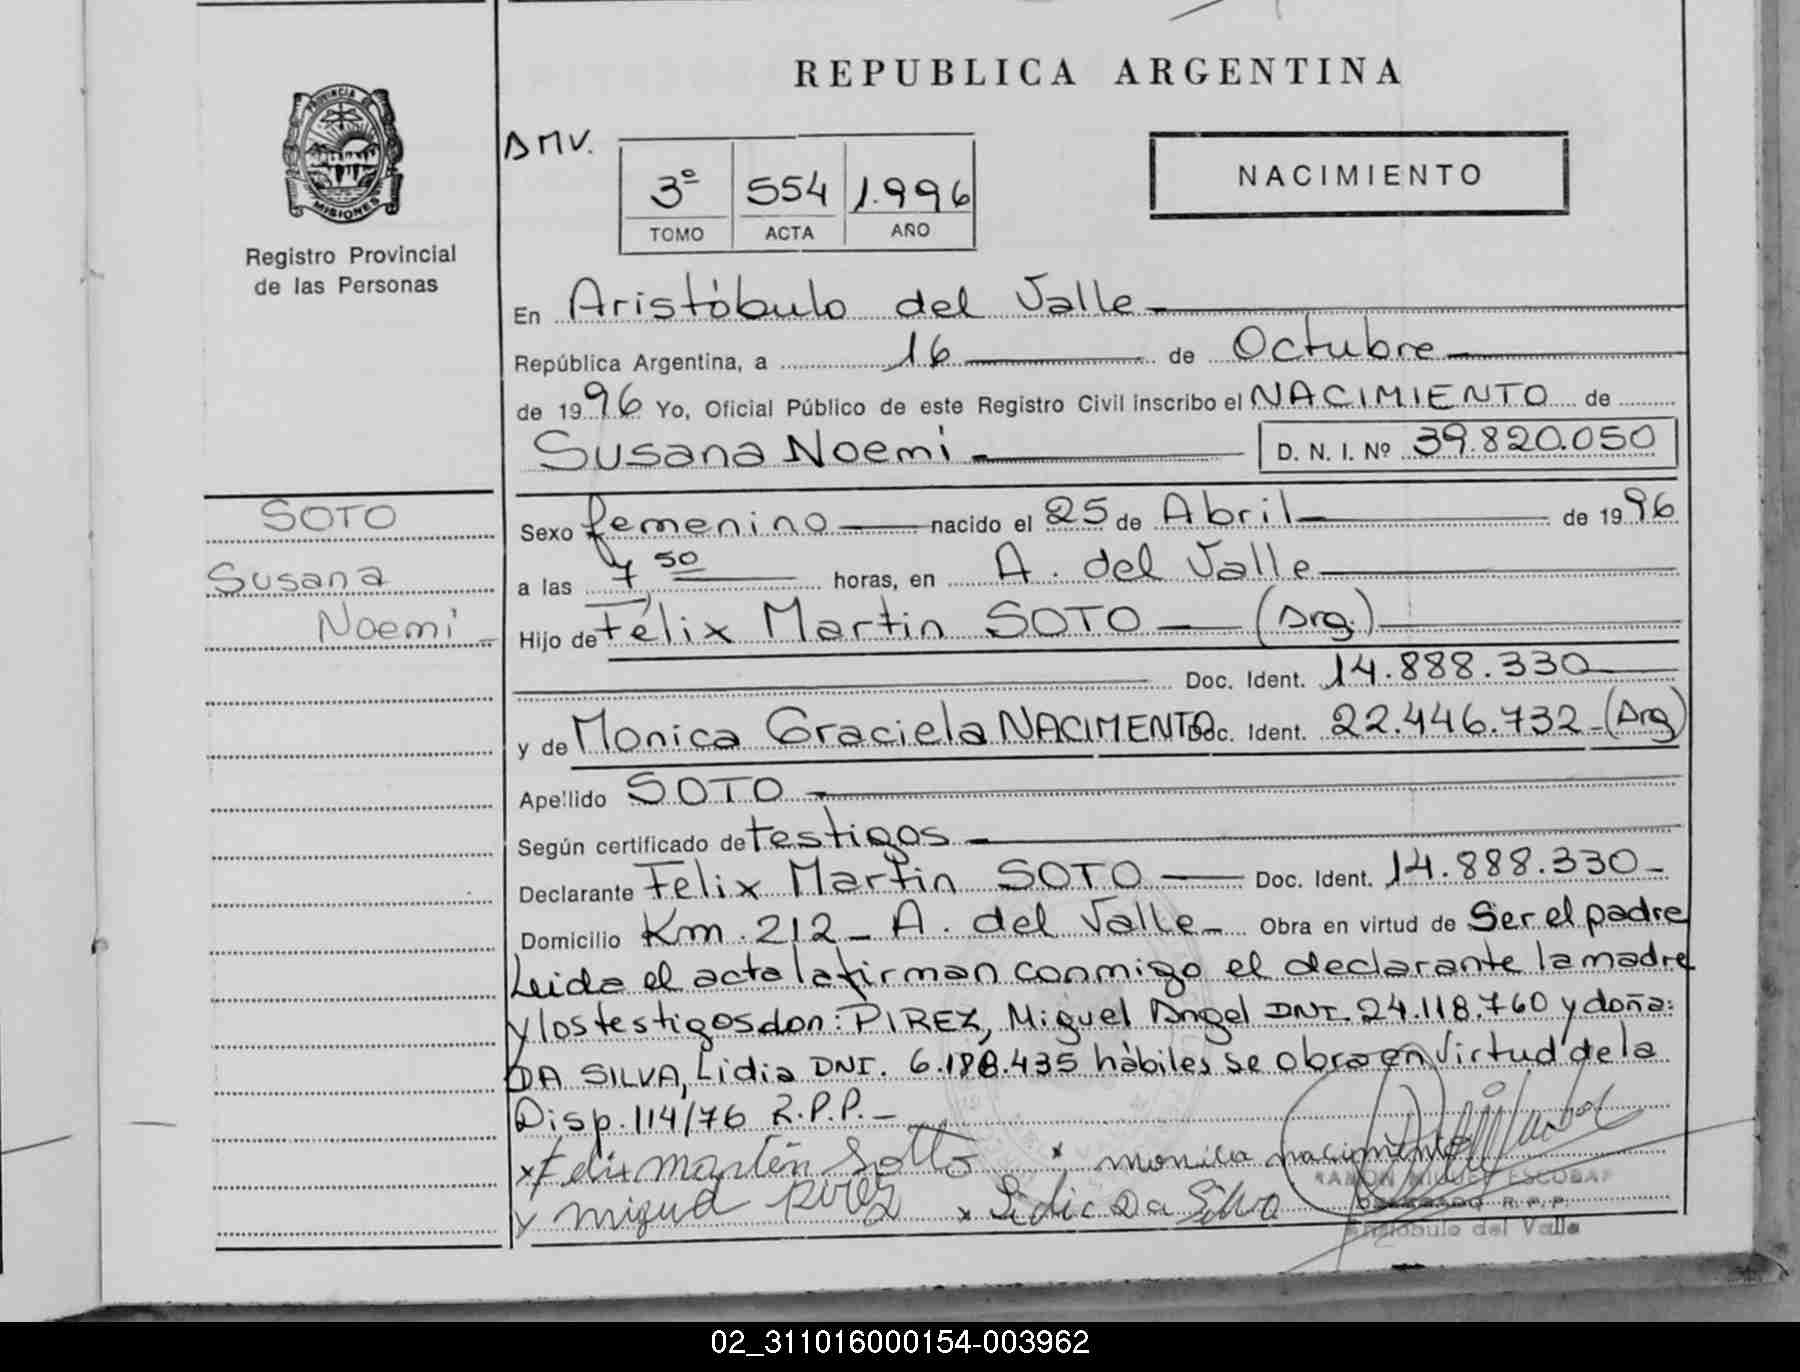 REPUBLICA ARGENTINA
PROVINCIA DE
MISIONES
Registro Provincial
de las Personas
AMV.
3º 554 1.996
TOMO ACTA AÑO
NACIMIENTO
En Aristóbulo del Valle
República Argentina, a 16 de Octubre
de 1996 Yo, Oficial Público de este Registro Civil inscribo el NACIMIENTO de
Susana Noemi D. N. I. Nº 39.820.050
SOTO
Susana
Noemi
Sexo femenino nacido el 25 de Abril de 1996
a las 7 50 horas, en A. del Valle
Hijo de Félix Martin SOTO (Arg.)
Doc. Ident. 14.888.330
y de Monica Graciela NACIMENTO Doc. Ident. 22.446.732 (Arg)
Apellido SOTO
Según certificado de testigos
Declarante Felix Martin SOTO Doc. Ident. 14.888.330
Domicilio Km. 212 - A. del Valle Obra en virtud de Ser el padre
Leida el acta la firman conmigo el declarante la madre
y los testigos don: PIREZ, Miguel Angel DNI. 24.118.760 y doña:
DA SILVA, Lidia DNI. 6.188.435 hábiles se obra en virtud de la
Disp. 114/76 R.P.P.
x Felix Martin Sotto x monica nacimiento
x miguel Pirez x Lidia Da Silva
RAMON MIGUEL ESCOBAR
DELEGADO R.P.P.
Aristobulo del Valle
02_311016000154-003962